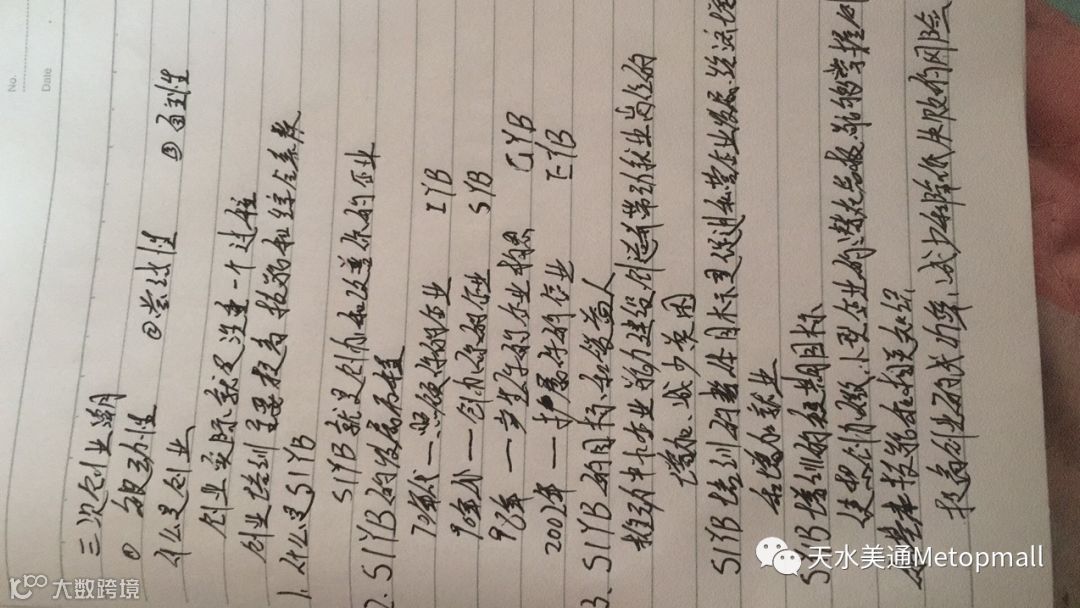 No.
Date
三次创业潮
① 被动性 ② 尝试性 ③ 自主性
什么是创业
创业实际就是注重一个过程
创业培训主要提高技能和综合素教
1. 什么是SIYB
SIYB就是创办和改善你的企业
2. SIYB的发展历程
70年代—改善你的企业 IYB
90年代—创办你的企业 SYB
98年—产生你的企业构思 GYB
2002年—扩展你的企业 EYB
3. SIYB的目标和受益人
推动中小企业能力建设创造并带动就业岗位的
增加,减少贫困
SIYB培训的整体目标是促进私营企业发展、经济增长
和增加就业
SIYB培训的短期目标
使想创办微、小型企业的潜在老板,能够掌握创
业基本技能和相关知识
提高创业的成功率,减少和降低失败的风险
大数跨境
天水美通Metopmall